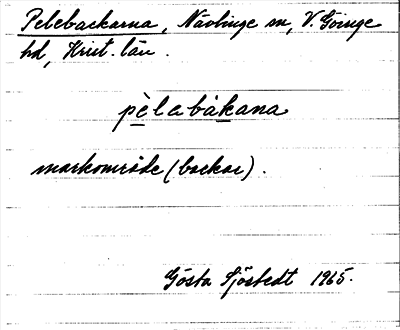 Pelebackarna, Nävlinge sn, V. Göinge
hd, Krist. län.
pèlabàkana
markområde (backar).
Gösta Sjöstedt 1965.